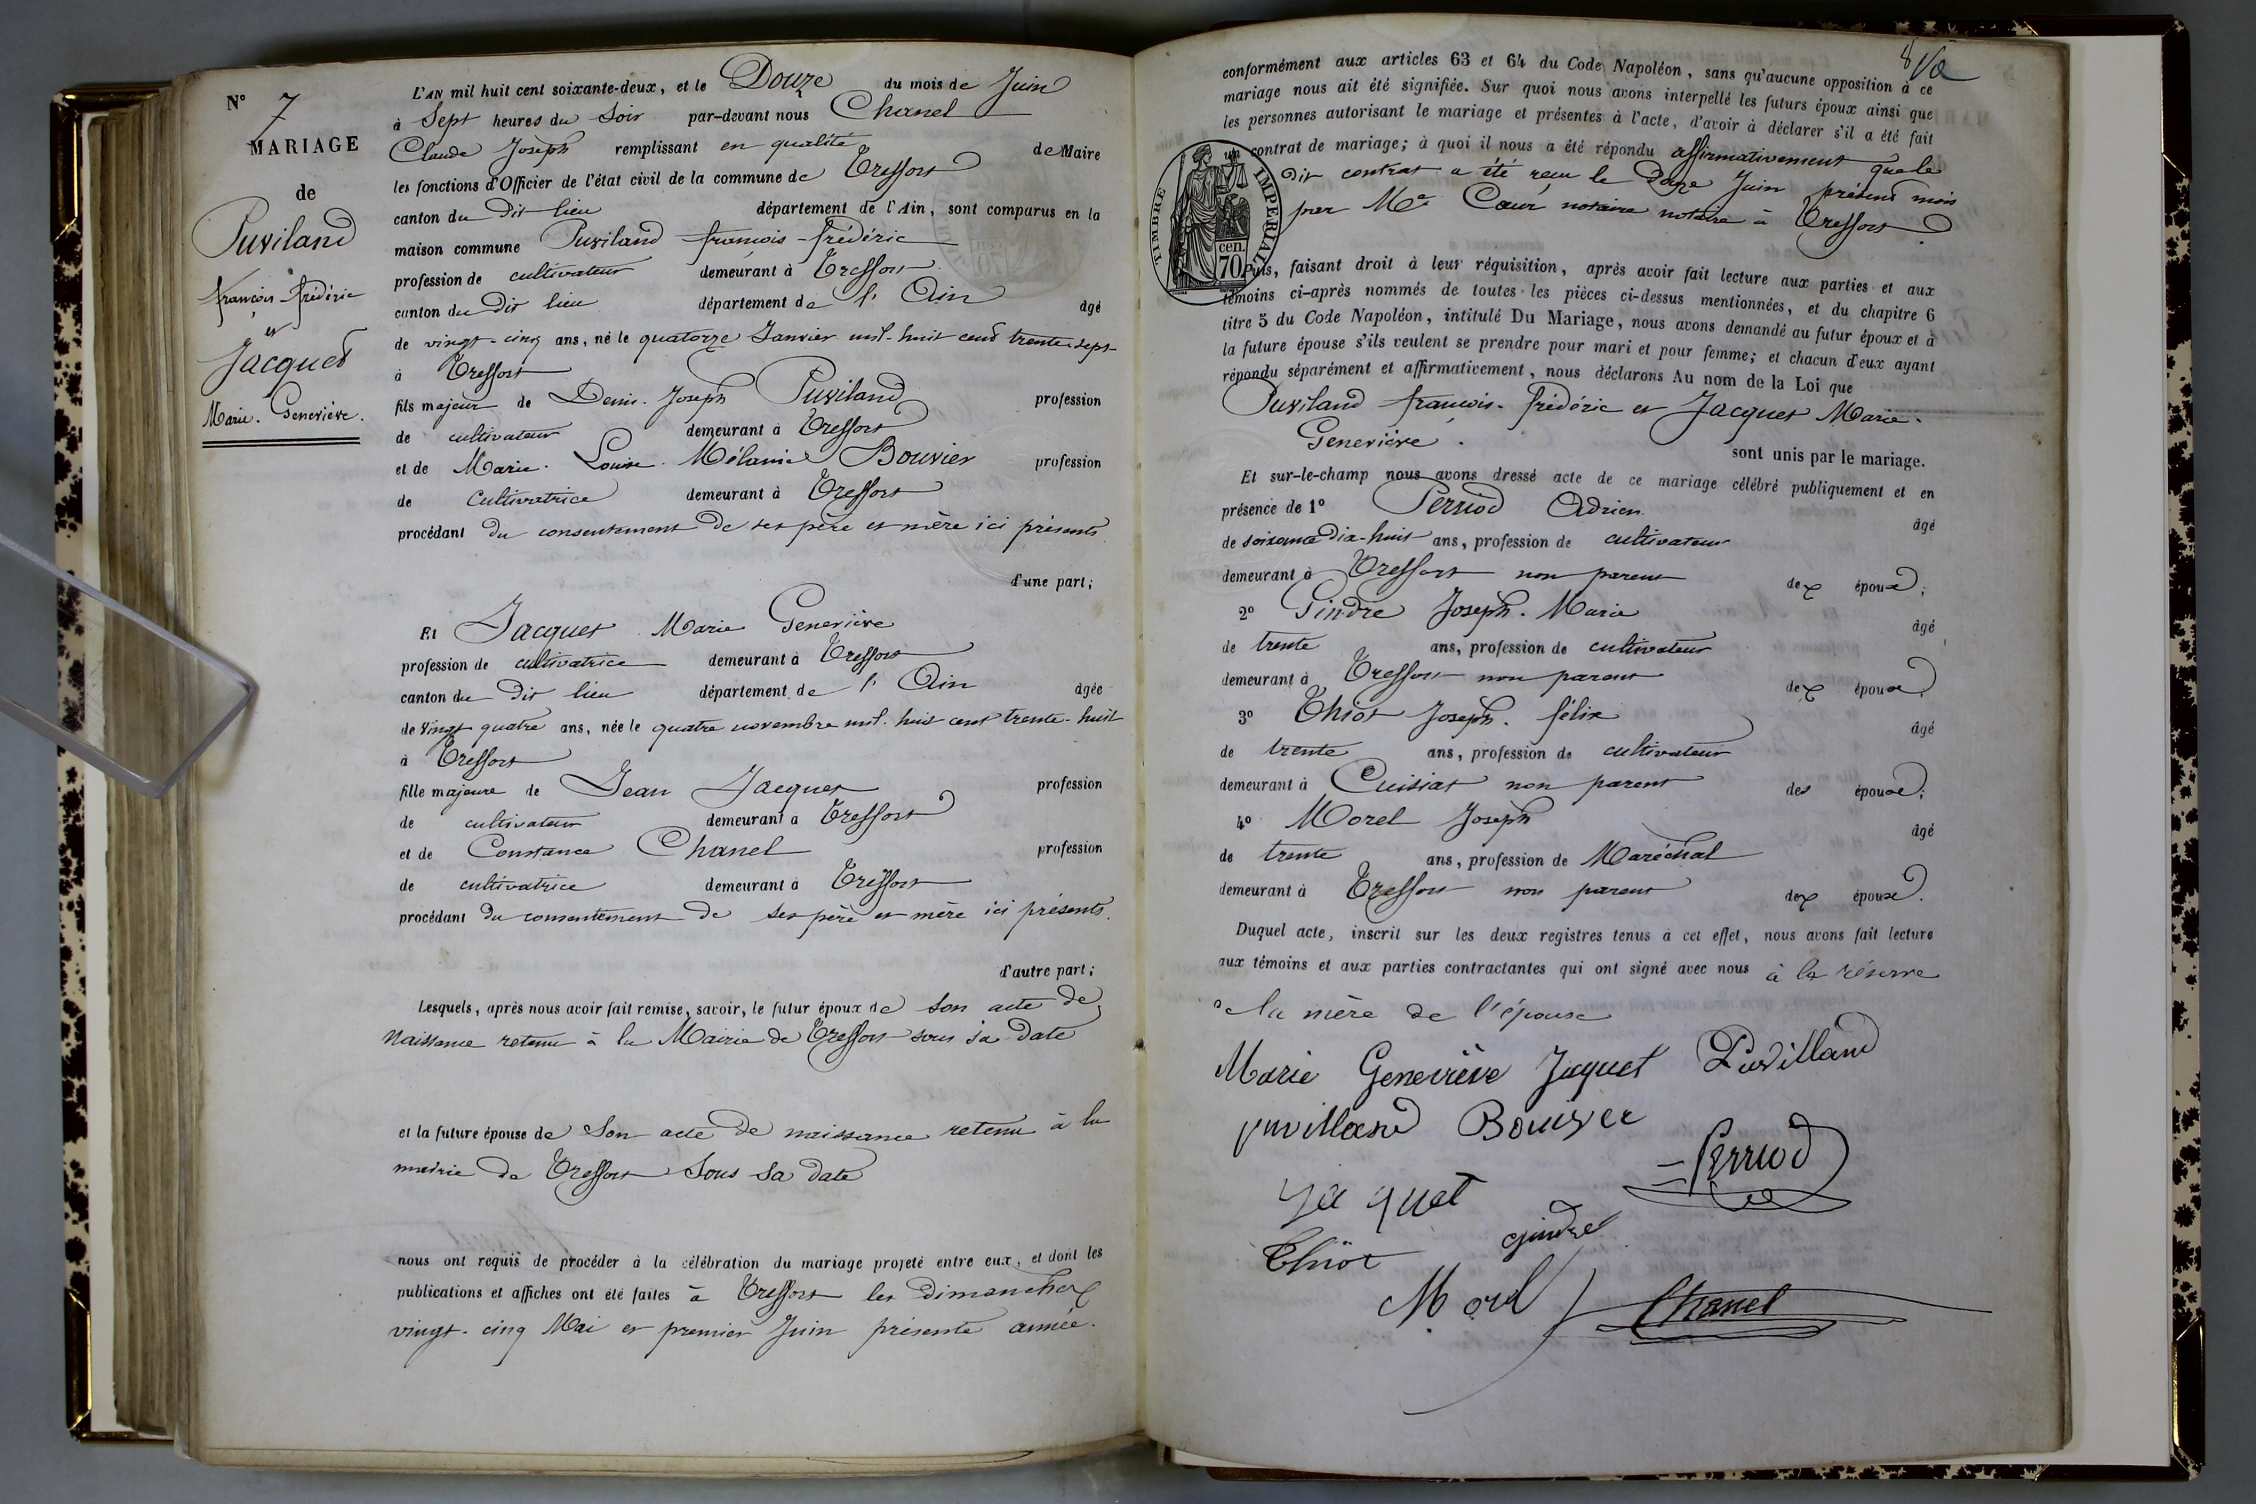 N° 7
MARIAGE
de
Puviland
françois-frédéric
et
Jacquet
Marie-Geneviève.
L'AN mil huit cent soixante-deux, et le Douze du mois de Juin
à Sept heures du Soir par-devant nous Chanel
Claude Joseph remplissant en qualité de Maire
les fonctions d'Officier de l'état civil de la commune de Treffort
canton du dit lieu département de l'Ain, sont comparus en la
maison commune Puviland françois-frédéric
profession de cultivateur demeurant à Treffort
canton du dit lieu département de l'Ain âgé
de vingt-cinq ans, né le quatorze Janvier mil-huit cent trente-sept
à Treffort
fils majeur de Denis-Joseph Puviland profession
de cultivateur demeurant à Treffort
et de Marie-Louise-Mélanie Bouvier profession
de cultivatrice demeurant à Treffort
procédant du consentement de ses père et mère ici présents
d'une part;
Et Jacquet Marie Geneviève
profession de cultivatrice demeurant à Treffort
canton du dit lieu département de l'Ain âgée
de vingt quatre ans, née le quatre novembre mil-huit cent trente-huit
à Treffort
fille majeure de Jean Jacquet profession
de cultivateur demeurant à Treffort
et de Constance Chanel profession
de cultivatrice demeurant à Treffort
procédant du consentement de ses père et mère ici présents.
d'autre part;
Lesquels, après nous avoir fait remise, savoir, le futur époux de son acte de
naissance retenu à la Mairie de Treffort sous sa date
et la future épouse de son acte de naissance retenu à la
mairie de Treffort sous sa date
nous ont requis de procéder à la célébration du mariage projeté entre eux, et dont les
publications et affiches ont été faites à Treffort les dimanches
vingt-cinq Mai et premier Juin présente année.
conformément aux articles 63 et 64 du Code Napoléon, sans qu'aucune opposition à ce
mariage nous ait été signifiée. Sur quoi nous avons interpellé les futurs époux ainsi que
les personnes autorisant le mariage et présentes à l'acte, d'avoir à déclarer s'il a été fait
contrat de mariage; à quoi il nous a été répondu affirmativement que le
dit contrat a été reçu le douze Juin présent mois
par Me Cœur notaire notaire à Treffort
TIMBRE IMPERIAL
70 cen.
Puis, faisant droit à leur réquisition, après avoir fait lecture aux parties et aux
témoins ci-après nommés de toutes les pièces ci-dessus mentionnées, et du chapitre 6
titre 5 du Code Napoléon, intitulé Du Mariage, nous avons demandé au futur époux et à
la future épouse s'ils veulent se prendre pour mari et pour femme; et chacun d'eux ayant
répondu séparément et affirmativement, nous déclarons Au nom de la Loi que
Puviland françois-frédéric et Jacquet Marie-
Geneviève.
sont unis par le mariage.
Et sur-le-champ nous avons dressé acte de ce mariage célébré publiquement et en
présence de 1° Perriod Adrien âgé
de soixante dix-huit ans, profession de cultivateur
demeurant à Treffort non parent des époux;
2° Gindre Joseph-Marie âgé
de trente ans, profession de cultivateur
demeurant à Treffort non parent des époux;
3° Thiot Joseph-félix âgé
de trente ans, profession de cultivateur
demeurant à Cuisiat non parent des époux;
4° Morel Joseph âgé
de trente ans, profession de Maréchal
demeurant à Treffort non parent des époux.
Duquel acte, inscrit sur les deux registres tenus à cet effet, nous avons fait lecture
aux témoins et aux parties contractantes qui ont signé avec nous à la réserve
de la mère de l'épouse
Marie Geneviève Jaquet Puvilland
puvilland Bouiver
Jaquet Perriod
Thiot gindre
Morel Chanel